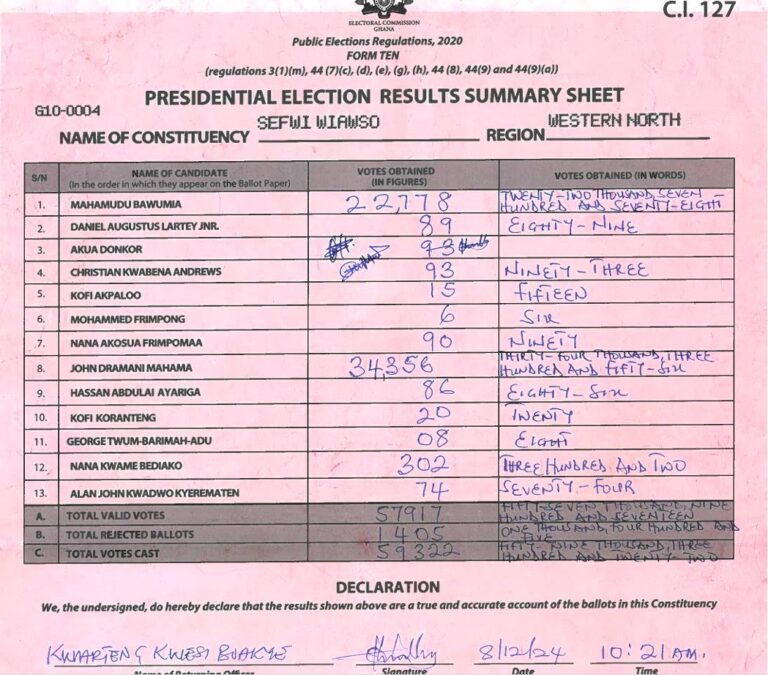 C.I. 127
ELECTORAL COMMISSION
GHANA
Public Elections Regulations, 2020
FORM TEN
(regulations 3(1)(m), 44 (7)(c), (d), (e), (g), (h), 44 (8), 44(9) and 44(9)(a))
PRESIDENTIAL ELECTION RESULTS SUMMARY SHEET
G10-0004
NAME OF CONSTITUENCY SEFWI WIAWSO REGION WESTERN NORTH
S/N NAME OF CANDIDATE (In the order in which they appear on the Ballot Paper) VOTES OBTAINED (IN FIGURES) VOTES OBTAINED (IN WORDS)
1. MAHAMUDU BAWUMIA 22,778 TWENTY-TWO THOUSAND, SEVEN HUNDRED AND SEVENTY-EIGHT
2. DANIEL AUGUSTUS LARTEY JNR. 89 EIGHTY-NINE
3. AKUA DONKOR 93
4. CHRISTIAN KWABENA ANDREWS 93 NINETY-THREE
5. KOFI AKPALOO 15 FIFTEEN
6. MOHAMMED FRIMPONG 6 SIX
7. NANA AKOSUA FRIMPOMAA 90 NINETY
8. JOHN DRAMANI MAHAMA 34,356 THIRTY-FOUR THOUSAND, THREE HUNDRED AND FIFTY-SIX
9. HASSAN ABDULAI AYARIGA 86 EIGHTY-SIX
10. KOFI KORANTENG 20 TWENTY
11. GEORGE TWUM-BARIMAH-ADU 08 EIGHT
12. NANA KWAME BEDIAKO 302 THREE HUNDRED AND TWO
13. ALAN JOHN KWADWO KYEREMATEN 74 SEVENTY-FOUR
A. TOTAL VALID VOTES 57917 FIFTY-SEVEN THOUSAND, NINE HUNDRED AND SEVENTEEN
B. TOTAL REJECTED BALLOTS 1405 ONE THOUSAND, FOUR HUNDRED AND FIVE
C. TOTAL VOTES CAST 59322 FIFTY-NINE THOUSAND, THREE HUNDRED AND TWENTY-TWO
DECLARATION
We, the undersigned, do hereby declare that the results shown above are a true and accurate account of the ballots in this Constituency
KWARTENG KWESI BOAKYE 8/12/24 10:21 AM.
Name of Returning Officer Signature Date Time